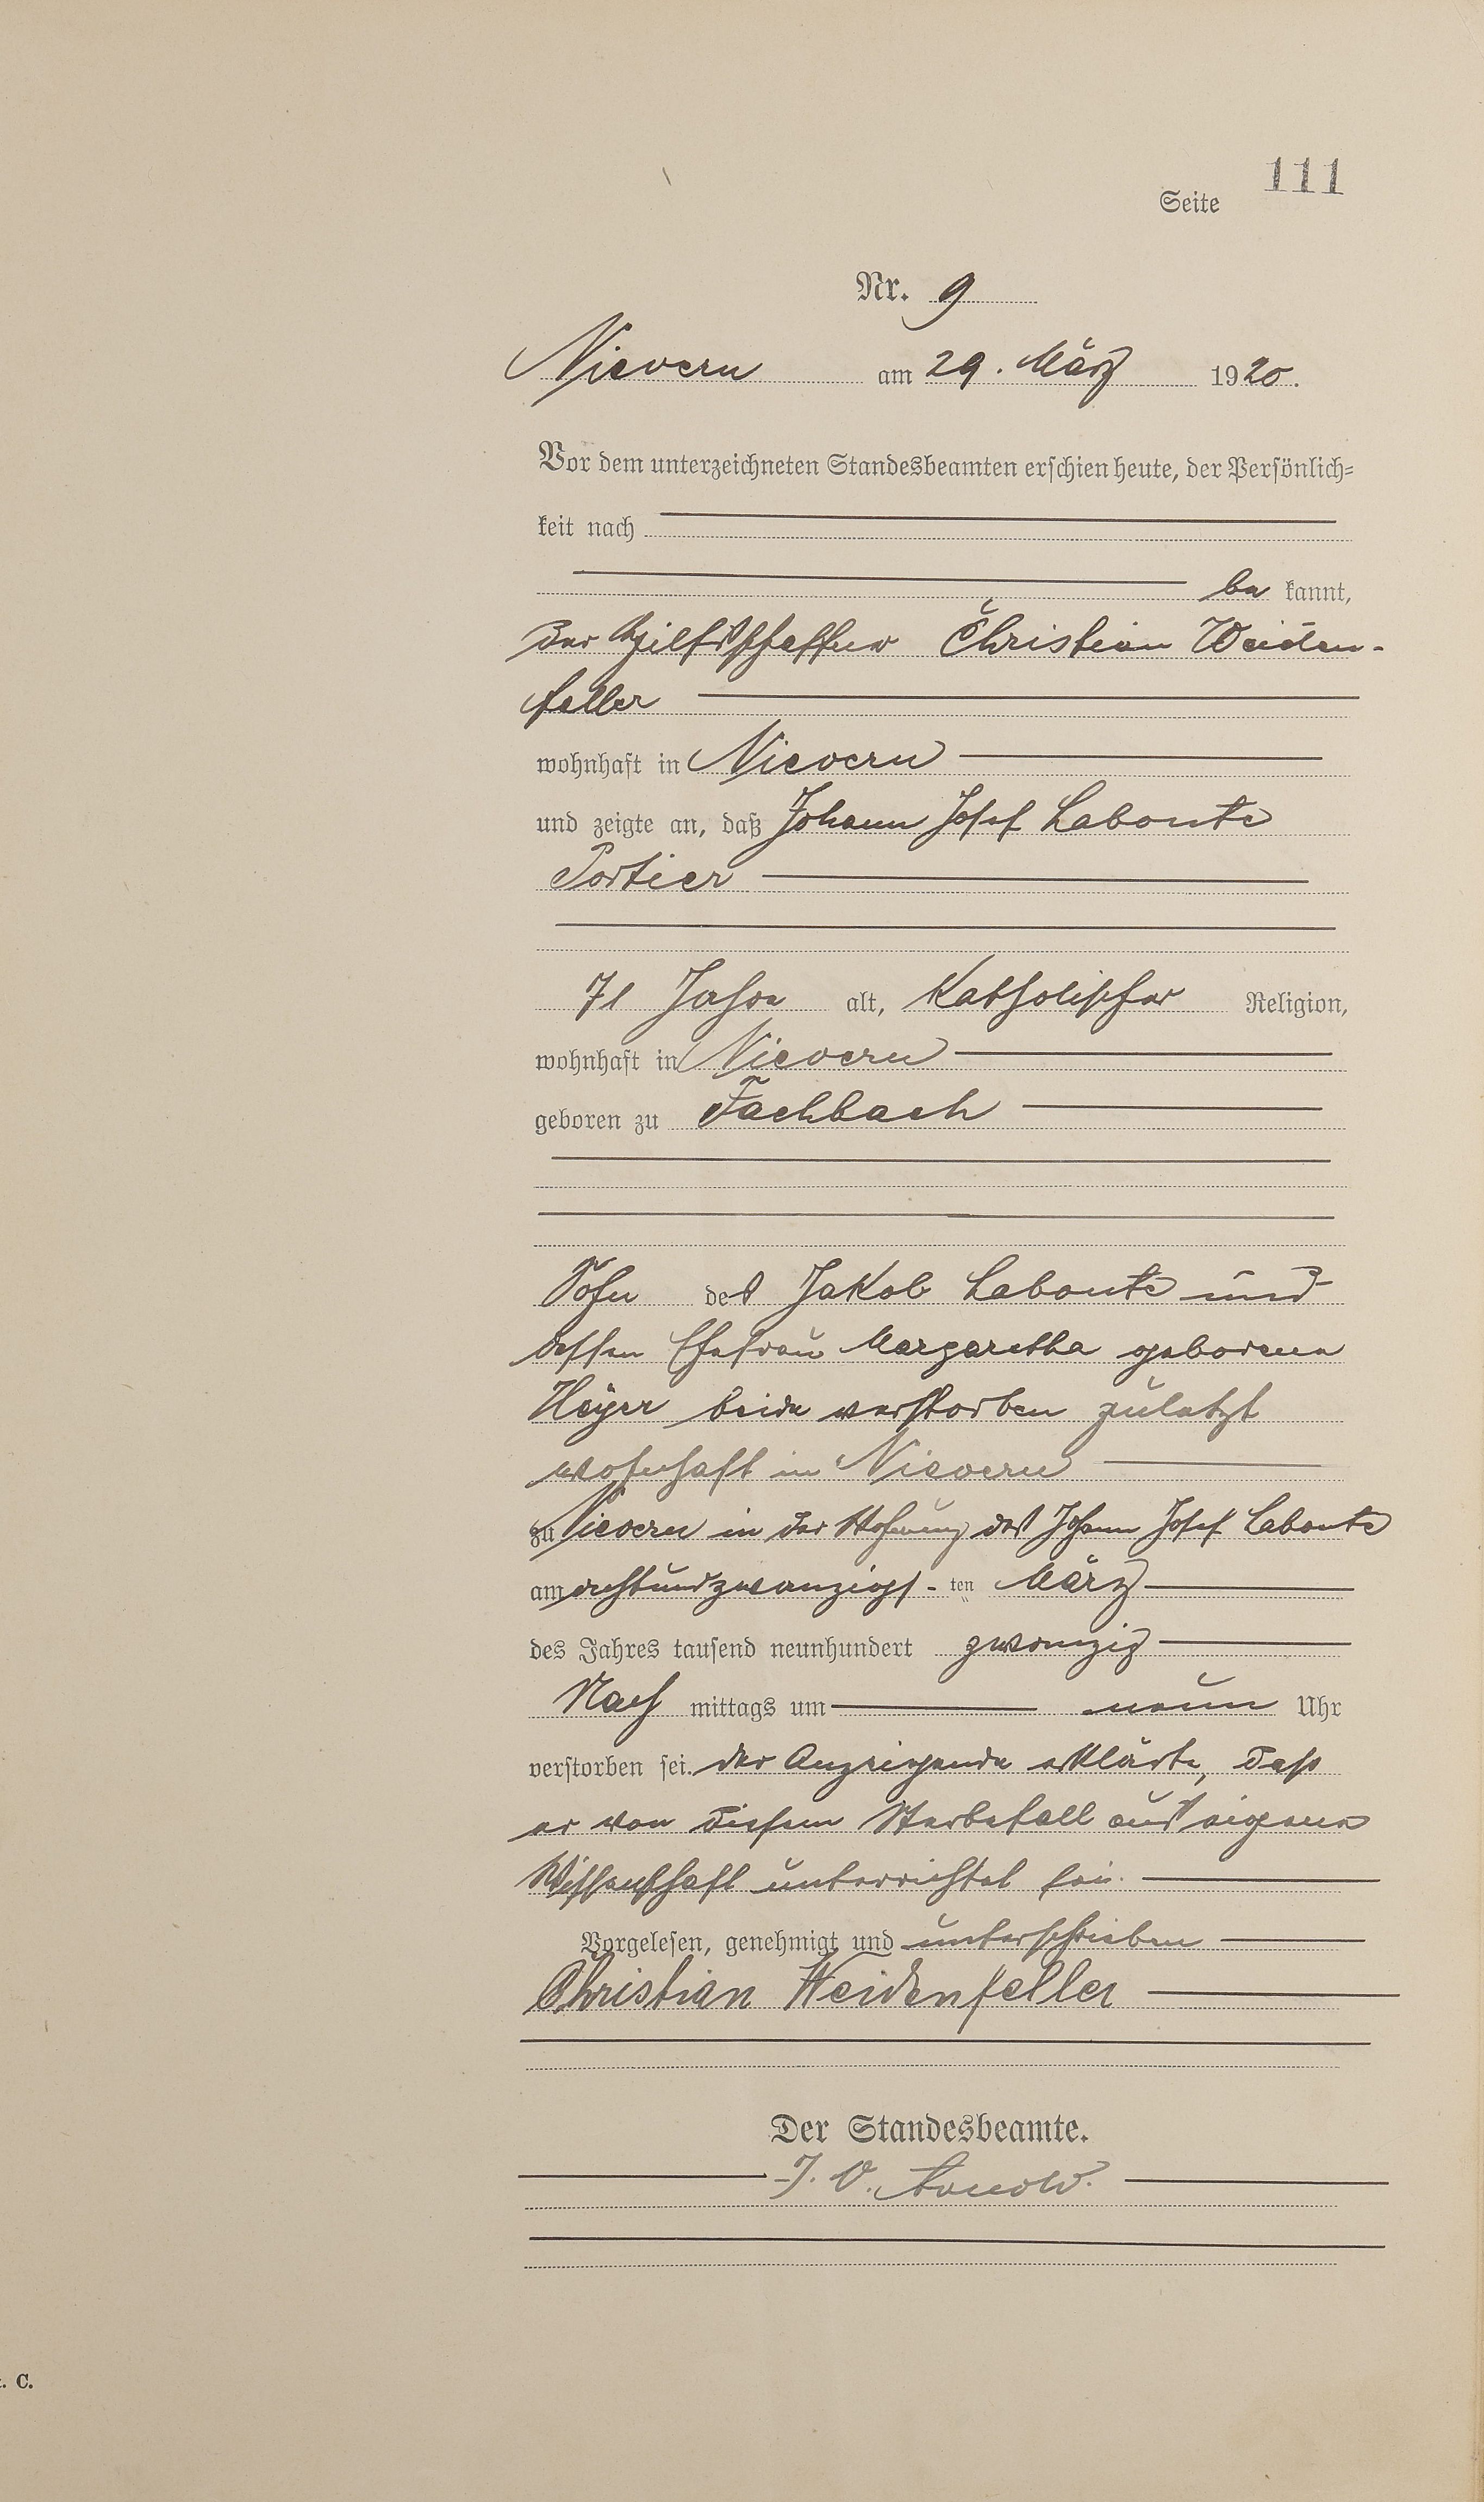 111
Seite
Nr. 9
Nievern am 29. März 1920.
Vor dem unterzeichneten Standesbeamten erschien heute, der Persönlich=
keit nach
be kannt,
der Hilfsschaffner Christian Weiden-
feller
wohnhaft in Nievern
und zeigte an, daß Johann Josef Labonte
Portier
71 Jahre alt, Katholischer Religion,
wohnhaft in Nievern
geboren zu Fachbach
Sohn des Jakob Labonte und
dessen Ehefrau Margaretha geborene
Heyer beide verstorben zuletzt
wohnhaft in Nievern
zu Nievern in der Wohnung des Johann Josef Labonte
am achtundzwanzigs-ten März
des Jahres tausend neunhundert zwanzig
Nach mittags um neun Uhr
verstorben sei. der Anzeigende erklärte, dass
er von diesem Sterbefall aus eigener
Wissenschaft unterrichtet sei.
Vorgelesen, genehmigt und unterschrieben
Christian Weidenfeller
Der Standesbeamte.
J. V. Arnold.
. C.